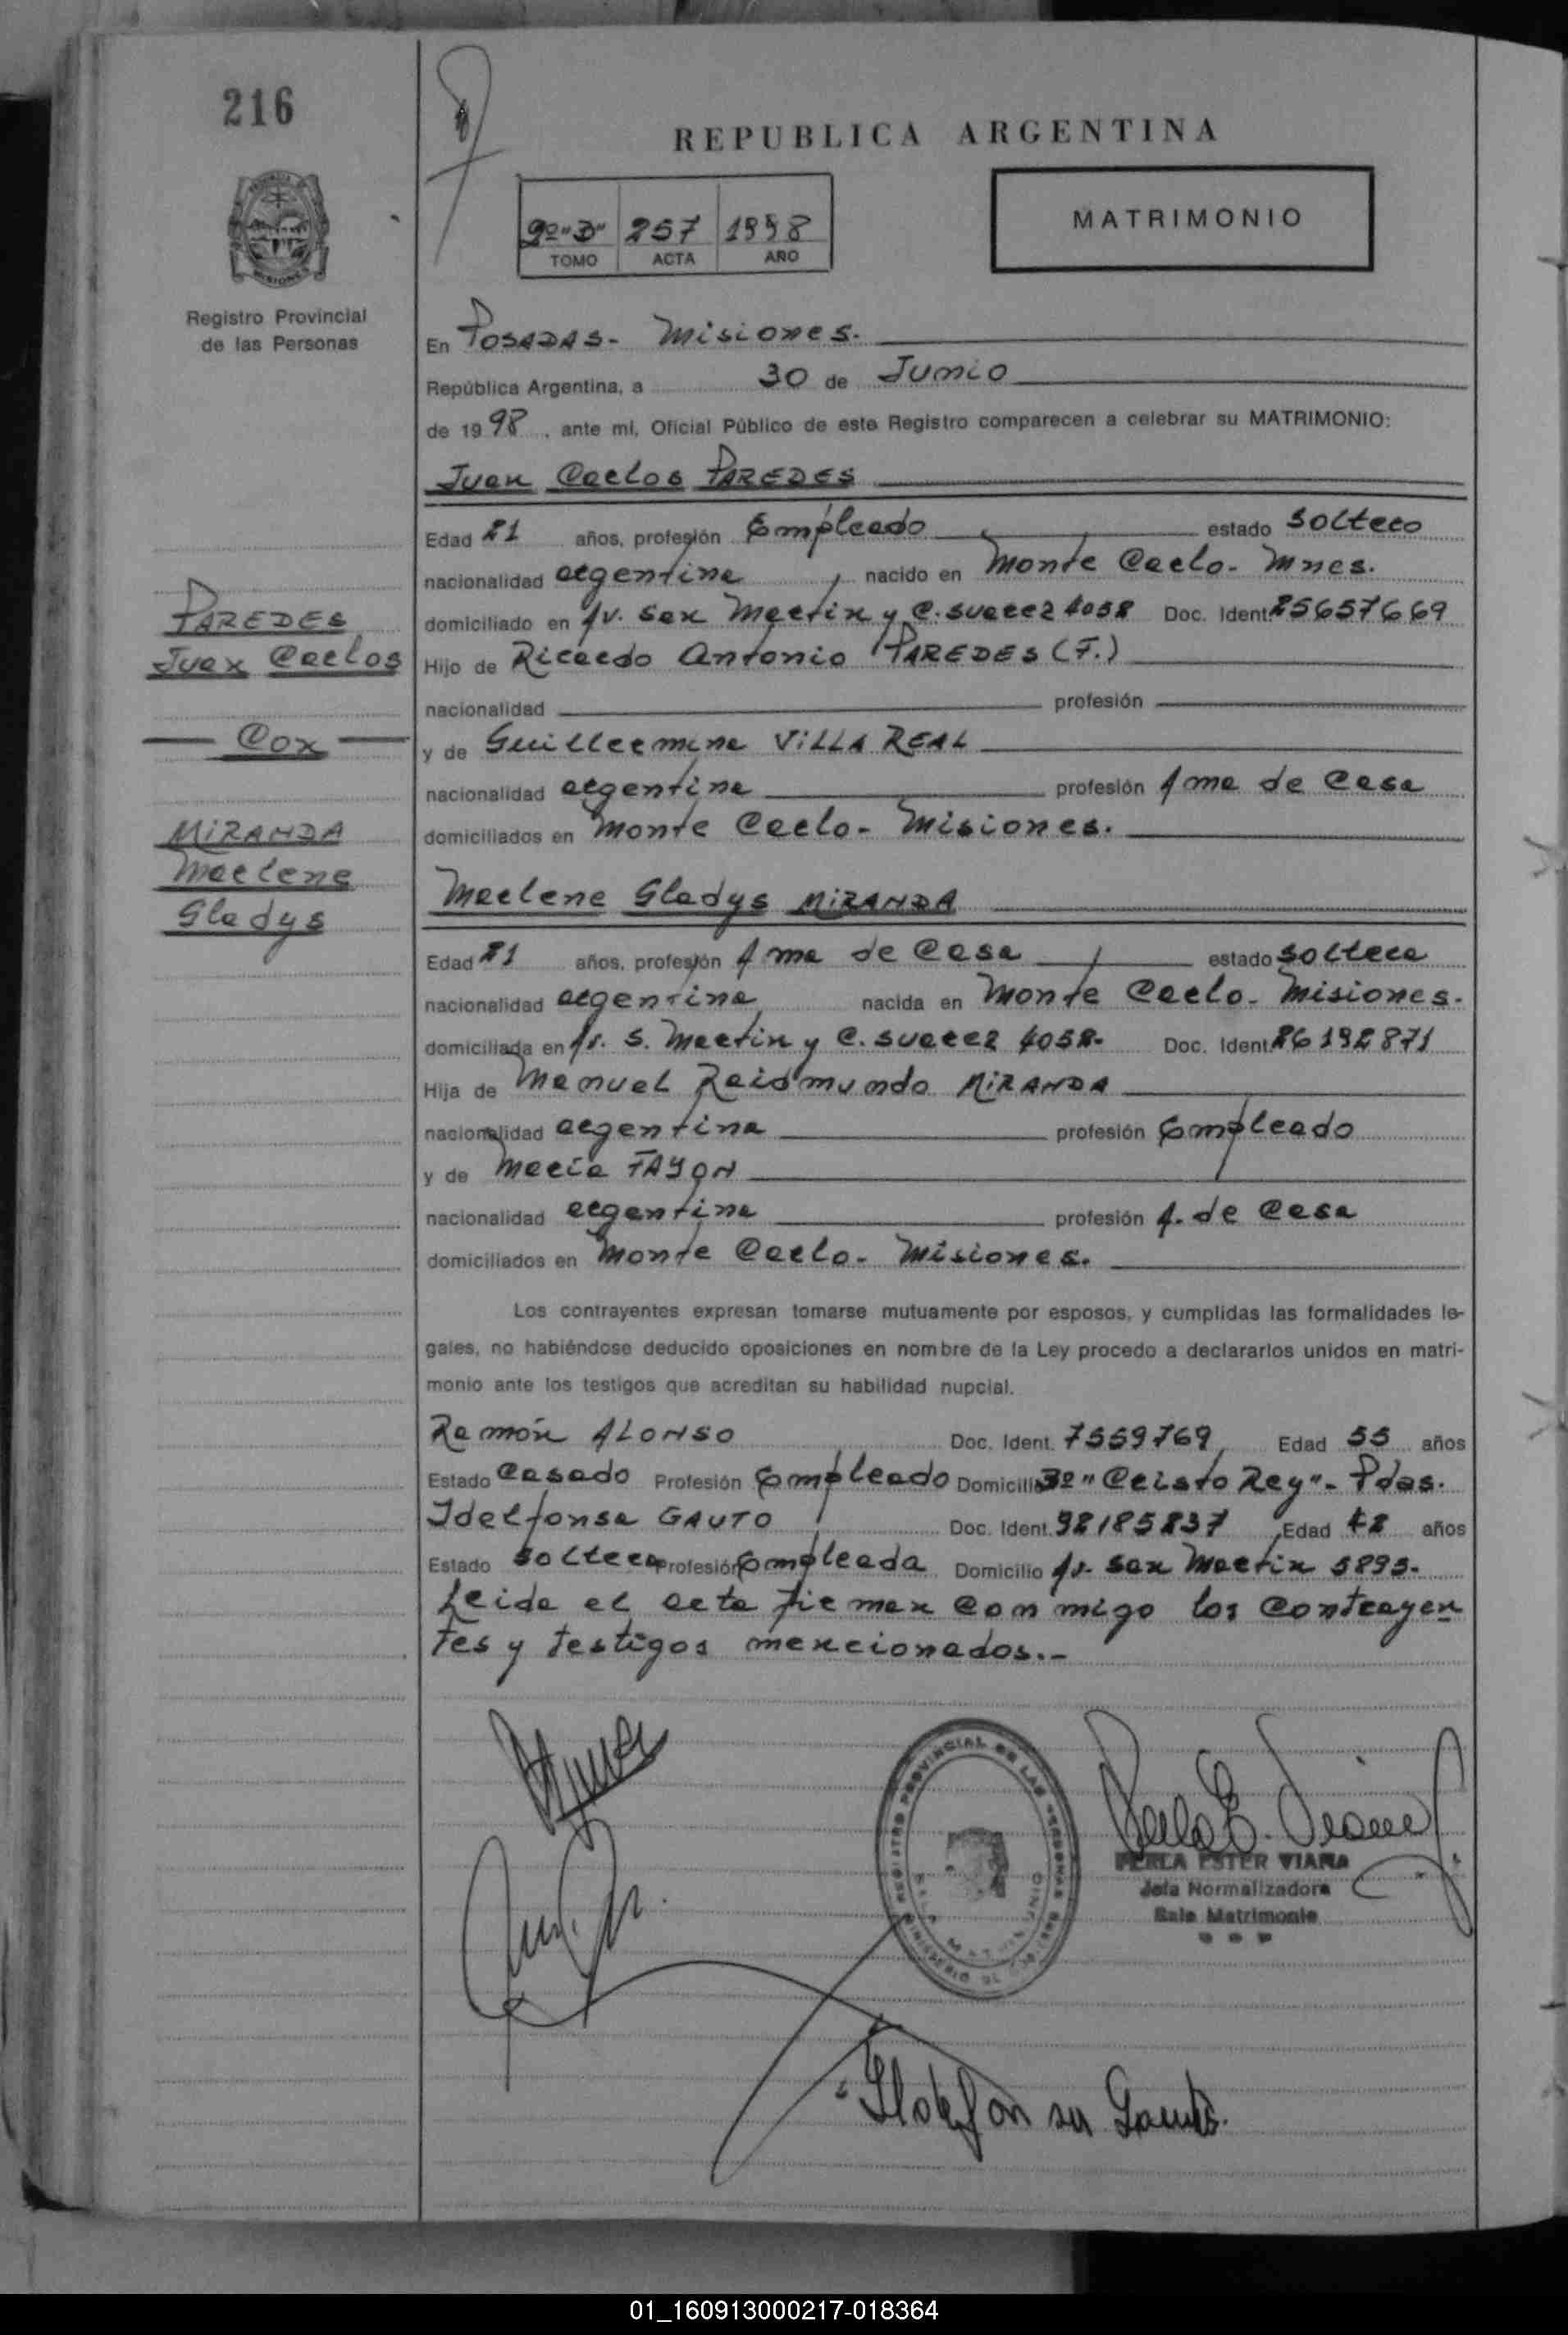 216
REPUBLICA ARGENTINA
2º "D" 257 1998
TOMO ACTA AÑO
MATRIMONIO
Registro Provincial
de las Personas
En POSADAS- Misiones.
República Argentina, a 30 de Junio
de 19 98, ante mí, Oficial Público de este Registro comparecen a celebrar su MATRIMONIO:
Juan Carlos PAREDES
Edad 21 años, profesión Empleado estado Soltero
nacionalidad argentina, nacido en Monte Carlo- Mnes.
domiciliado en Av. San Martin y C. Suarez 4058 Doc. Ident. 25657669
Hijo de Ricardo Antonio PAREDES (F.)
nacionalidad profesión
y de Guillermina VILLA REAL
nacionalidad argentina profesión Ama de Casa
domiciliados en Monte Carlo- Misiones.
PAREDES
Juan Carlos
Con
MIRANDA
Marlene
Gladys
Marlene Gladys MIRANDA
Edad 21 años, profesión Ama de Casa estado Soltera
nacionalidad argentina nacida en Monte Carlo- Misiones.
domiciliada en Av. S. Martin y C. Suarez 4058- Doc. Ident. 26192871
Hija de Manuel Raismundo MIRANDA
nacionalidad argentina profesión Empleado
y de Maria FAYON
nacionalidad argentina profesión A. de Casa
domiciliados en Monte Carlo- Misiones.
Los contrayentes expresan tomarse mutuamente por esposos, y cumplidas las formalidades le-
gales, no habiéndose deducido oposiciones en nombre de la Ley procedo a declararlos unidos en matri-
monio ante los testigos que acreditan su habilidad nupcial.
Ramón ALONSO Doc. Ident. 7559769, Edad 55 años
Estado Casado Profesión Empleado Domicilio Bº "Cristo Rey"- Pdas.
Idelfonsa GAUTO Doc. Ident. 92185837 Edad 42 años
Estado Soltera Profesión Empleada Domicilio Av. San Martin 5895-
Leida el acta firman conmigo los contrayen
tes y testigos mencionados.-
REGISTRO PROVINCIAL DE LAS PERSONAS
PERLA ESTER VIANA
Jefa Normalizadora
Sala Matrimonio
Ildelfonsa Gauto.
01_160913000217-018364